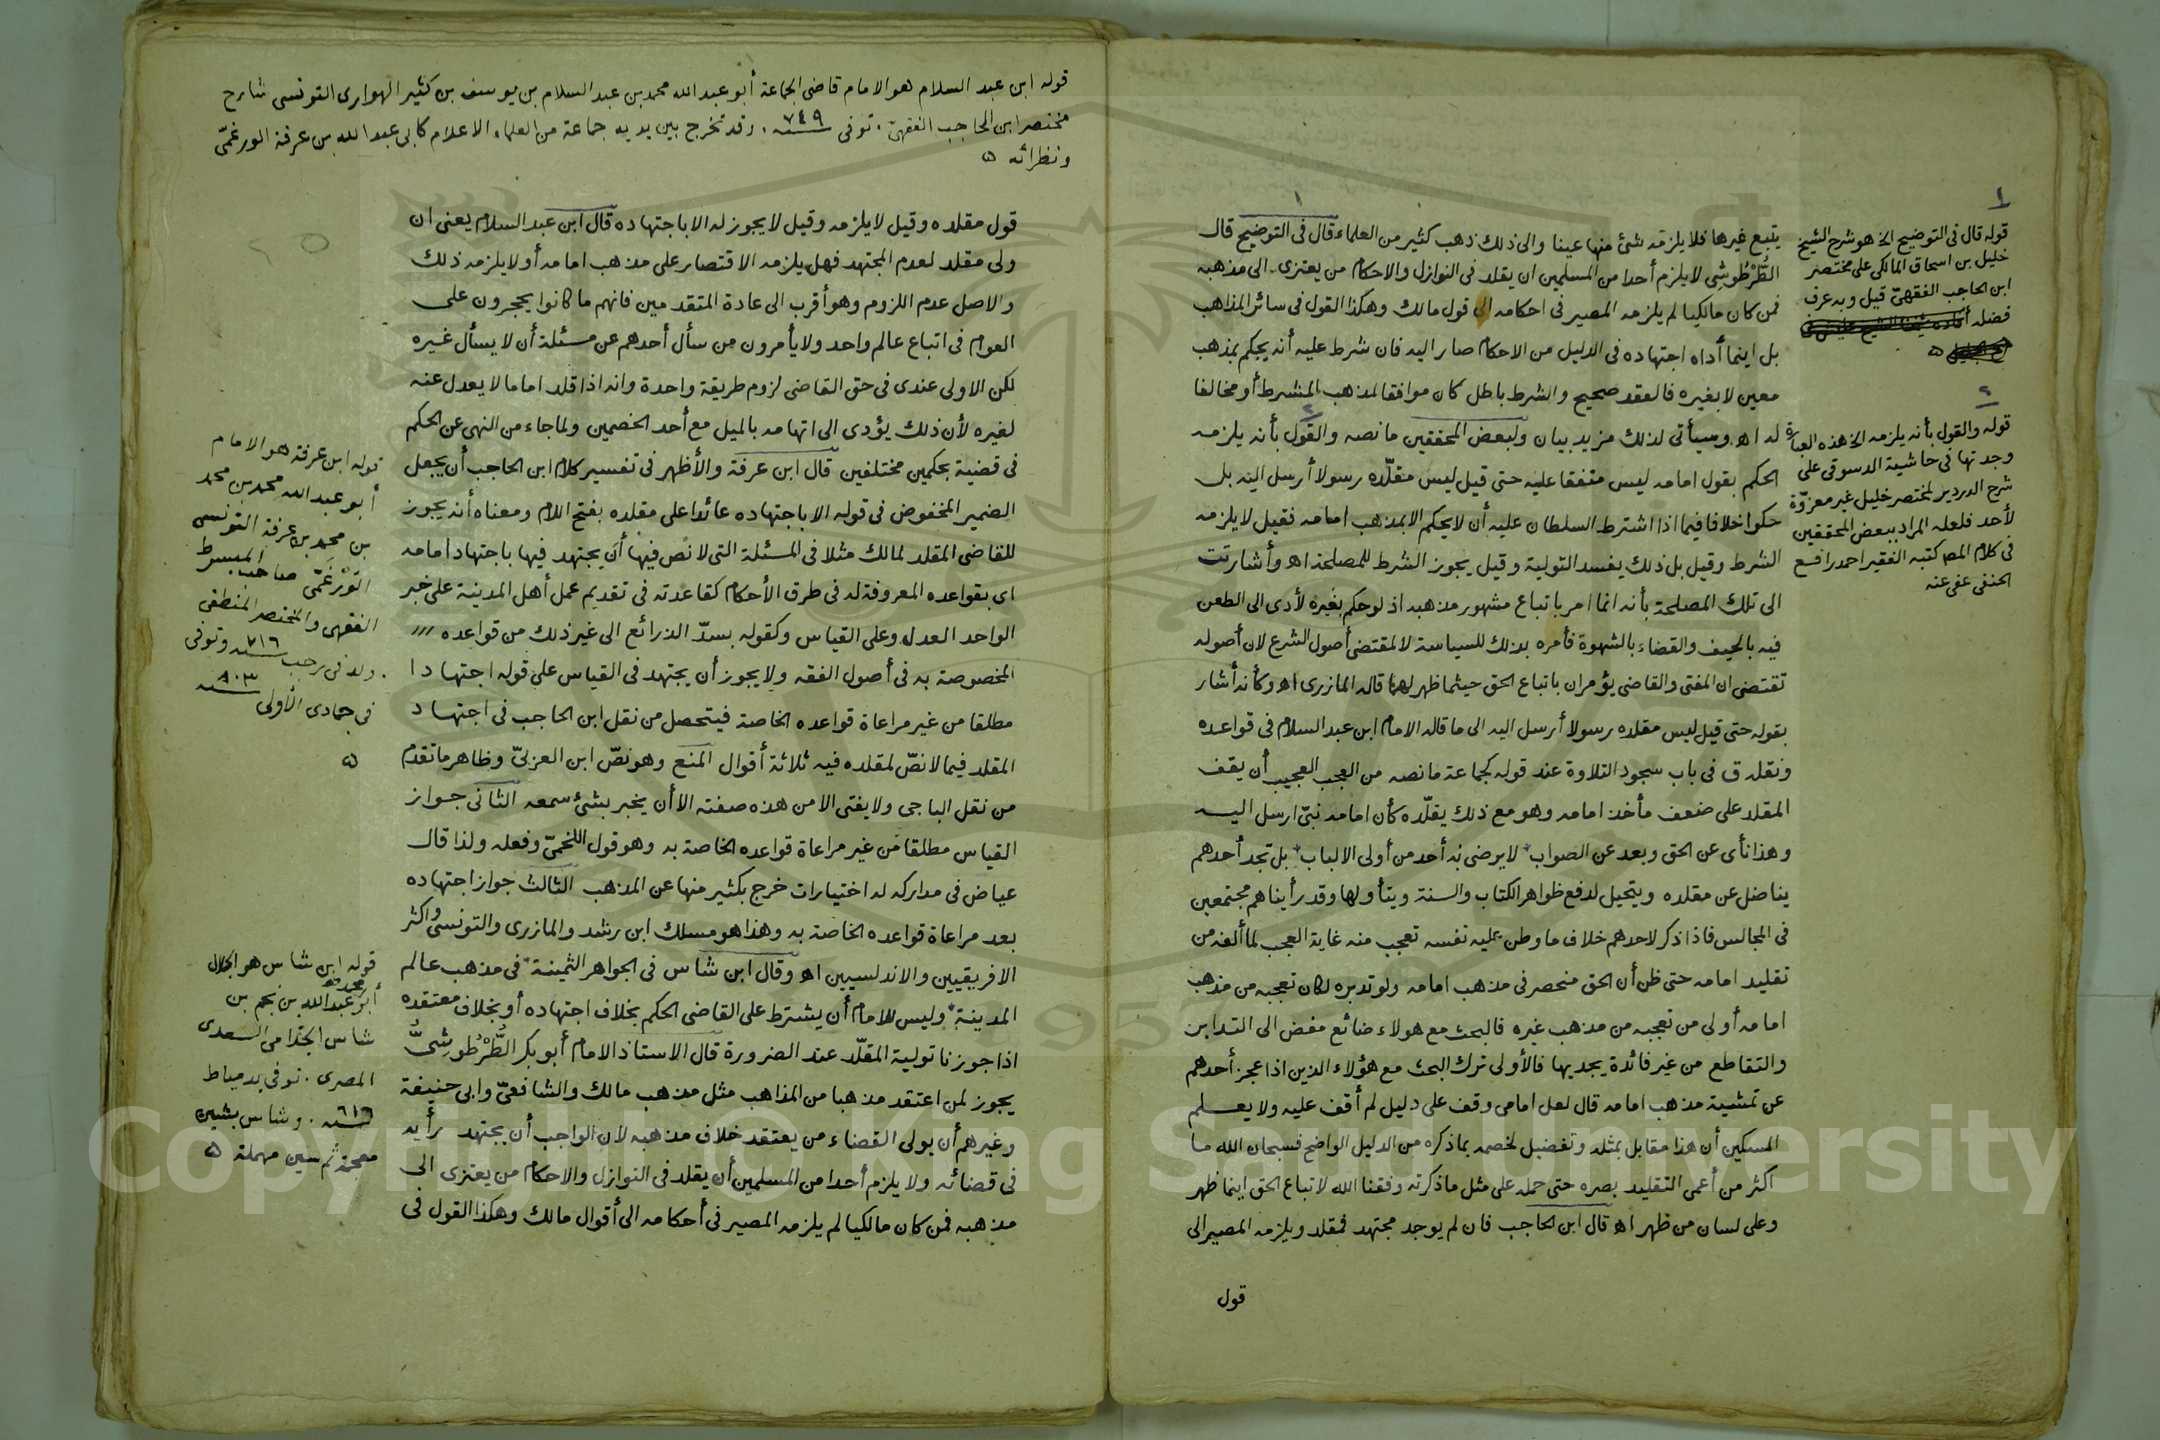 يتبع غيرها فلا يلزمه شئ منها عينا والى ذلك ذهب كثير من العلماء قال فى التوضيح قال
الطُّرْطُوشِى لا يلزم أحدا من المسلمين ان يقلد فى النوازل والاحكام من يعتزى الى مذهبه
فمن كان مالكيا لم يلزمه المصير فى احكامه الى قول مالك وهكذا القول فى سائر المذاهب
بل اينما أداه اجتهاده فى الدليل من الاحكام صار اليه فان شرط عليه أنه يحكم بمذهب
معين لا بغيره فالعقد صحيح والشرط باطل كان موافقا لمذهب المشترط أو مخالفا
له اه وسيأتى لذلك مزيد بيان ولبعض المحققين ما نصه والقول بأنه يلزمه
الحكم بقول امامه ليس متفقا عليه حتى قيل ليس مقلّده رسولا أرسل اليه بل
حكوا خلافا فيما اذا اشترط السلطان عليه أن لا يحكم الا بمذهب امامه فقيل لا يلزمه
الشرط وقيل بل ذلك يفسد التولية وقيل يجوز الشرط للمصلحة اه وأشارت
الى تلك المصلحة بأنه انما امر باتباع مشهور مذهبه اذ لو حكم بغيره لأدى الى الطعن
فيه بالحيف والقضاء بالشهوة فأمره بذلك للسياسة لا لمقتضى أصول الشرع لان أصوله
تقتضى ان المفتى والقاضى يؤمران باتباع الحق حيثما ظهر لهما قاله المازرى اه وكأنه أشار
بقوله حتى قيل ليس مقلده رسولا أرسل اليه الى ما قاله الامام ابن عبد السلام فى قواعده
ونقله ق فى باب سجود التلاوة عند قوله كجماعة ما نصه من العجب العجيب أن يقف
المقلد على ضعف مأخذ امامه وهو مع ذلك يقلّده كأن امامه نبىّ ارسل اليه
وهذا نأى عن الحق وبعد عن الصواب لا يرضى به أحد من أولى الالباب بل تجد أحدهم
يناضل عن مقلده ويتحيل لدفع ظواهر الكتاب والسنة ويتأولها وقد رأيناهم مجتمعين
فى المجالس فاذا ذكر لاحدهم خلاف ما وطن عليه نفسه تعجب منه غاية العجب لما ألفه من
تقليد امامه حتى ظن أن الحق منحصر فى مذهب امامه ولو تدبره لكان تعجبه من مذهب
امامه أولى من تعجبه من مذهب غيره فالبحث مع هولاء ضائع مفض الى التدابر
والتقاطع من غير فائدة يجديها فالأولى ترك البحث مع هؤلاء الذين اذا عجز أحدهم
عن تمشية مذهب امامه قال لعل امامى وقف على دليل لم أقف عليه ولا يعلم
المسكين أن هذا مقابل بمثله وتفضيل لخصمه بما ذكره من الدليل الواضح فسبحان الله ما
اكثر من أعمى التقليد بصره حتى حمله على مثل ما ذكرته وفقنا الله لاتباع الحق اينما ظهر
وعلى لسان من ظهر اه قال ابن الحاجب فان لم يوجد مجتهد فمقلد ويلزمه المصير الى
قول
١
قوله قال فى التوضيح الخ هو شرح الشيخ
خليل بن اسحاق المالكى على مختصر
ابن الحاجب الفقهىّ قيل وبه عرف
فضله
٢
قوله والقول بأنه يلزمه الخ هذه العبارة
وجدتها فى حاشية الدسوقى على
شرح الدردير لمختصر خليل غير معزوّة
لأحد فلعله المراد ببعض المحققين
فى كلام المص كتبه الفقير احمد رافع
الحنفى عفى عنه
قوله ابن عبد السلام هو الامام قاضى الجماعة أبو عبد الله محمد بن عبد السلام بن يوسف بن كثير الهوارى التونسى شارح
مختصر ابن الحاجب الفقهىّ . توفى سنة ٧٤٩ . وقد تخرج بين يديه جماعة من العلماء الاعلام كابى عبد الله بن عرفة الورغمّى
ونظرائه ه
قول مقلده وقيل لا يلزمه وقيل لا يجوز له الا باجتهاده قال ابن عبد السلام يعنى ان
ولى مقلد لعدم المجتهد فهل يلزمه الاقتصار على مذهب امامه أو لا يلزمه ذلك
والاصل عدم اللزوم وهو أقرب الى عادة المتقدمين فانهم ما كانوا يحجرون على
العوام فى اتباع عالم واحد ولا يأمرون من سأل أحدهم عن مسئلة أن لا يسأل غيره
لكن الاولى عندى فى حق القاضى لزوم طريقة واحدة وانه اذا قلد اماما لا يعدل عنه
لغيره لأن ذلك يؤدى الى اتهامه بالميل مع أحد الخصمين ولما جاء من النهى عن الحكم
فى قضية بحكمين مختلفين قال ابن عرفة والأظهر فى تفسير كلام ابن الحاجب أن يجعل
الضمير المخفوض فى قوله الا باجتهاده عائدا على مقلده بفتح اللام ومعناه أنه يجوز
للقاضى المقلد لمالك مثلا فى المسئلة التى لا نص فيها أن يجتهد فيها باجتهاد امامه
اى بقواعده المعروفة له فى طرق الأحكام كقاعدته فى تقديم عمل أهل المدينة على خبر
الواحد العدل وعلى القياس وكقوله بسدّ الذرائع الى غير ذلك من قواعده
المخصوصة به فى أصول الفقه ولا يجوز أن يجتهد فى القياس على قوله اجتهادا
مطلقا من غير مراعاة قواعده الخاصة فيتحصل من نقل ابن الحاجب فى اجتهاد
المقلد فيما لا نصّ لمقلده فيه ثلاثة أقوال المنع وهو نصّ ابن العربىّ وظاهر ما تقدم
من نقل الباجى ولا يفتى الا من هذه صفته الا أن يخبر بشئ سمعه الثانى جواز
القياس مطلقا من غير مراعاة قواعده الخاصة به وهو قول اللخمىّ وفعله ولذا قال
عياض فى مداركه له اختيارات خرج بكثير منها عن المذهب الثالث جواز اجتهاده
بعد مراعاة قواعده الخاصة به وهذا هو مسلك ابن رشد والمازرى والتونسى واكثر
الافريقيين والاندلسيين اه وقال ابن شاس فى الجواهر الثمينة فى مذهب عالم
المدينة وليس للامام أن يشترط على القاضى الحكم بخلاف اجتهاده أو بخلاف معتقده
اذا جوزنا تولية المقلّد عند الضرورة قال الاستاذ الامام أبو بكر الطُّرْطُوشِىُّ
يجوز لمن اعتقد مذهبا من المذاهب مثل مذهب مالك والشافعىّ وابى حنيفة
وغيرهم أن يولى القضاء من يعتقد خلاف مذهبه لان الواجب أن يجتهد رأيه
فى قضائه ولا يلزم أحدا من المسلمين أن يقلد فى النوازل والاحكام من يعتزى الى
مذهبه فمن كان مالكيا لم يلزمه المصير فى أحكامه الى أقوال مالك وهكذا القول فى
قوله ابن عرفة هو الامام
أبو عبد الله محمد بن محمد
بن محمد بن عرفة التونسى
الوَرْغَمّى صاحب المبسوط
الفقهى والمختصر المنطقى
. ولد فى رجب سنة ٧١٦ وتوفى
فى جمادى الأولى سنة ٨٠٣
ه
قوله ابن شاس هو الجلال
أبو محمد عبد الله بن نجم بن
شاس الجذامى السعدى
المصرى . توفى بدمياط
سنة ٦١٦ . وشاس بشين
معجمة ثم سين مهملة ه
Copyright © King Saud University